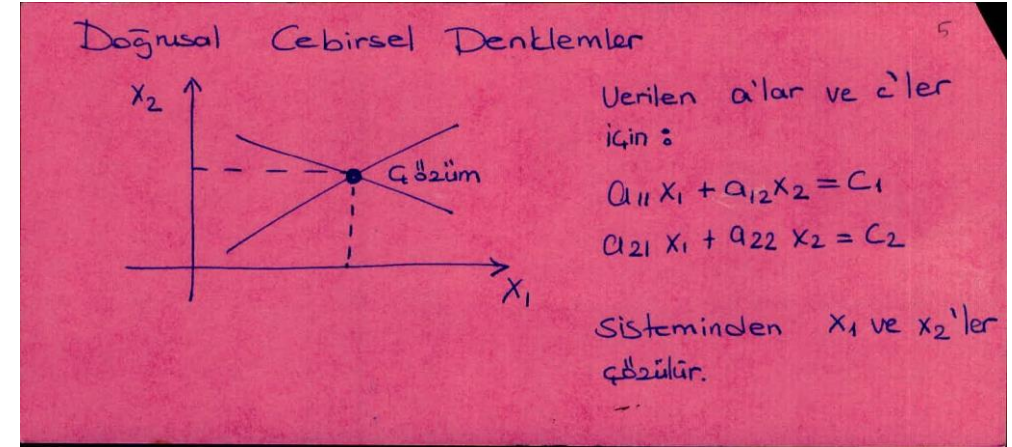 Doğrusal Cebirsel Denklemler
5
X₂
Çözüm
X₁
Verilen a'lar ve c'ler
için :
a₁₁ x₁ + a₁₂ x₂ = C₁
a₂₁ x₁ + a₂₂ x₂ = C₂
sisteminden x₁ ve x₂'ler
çözülür.